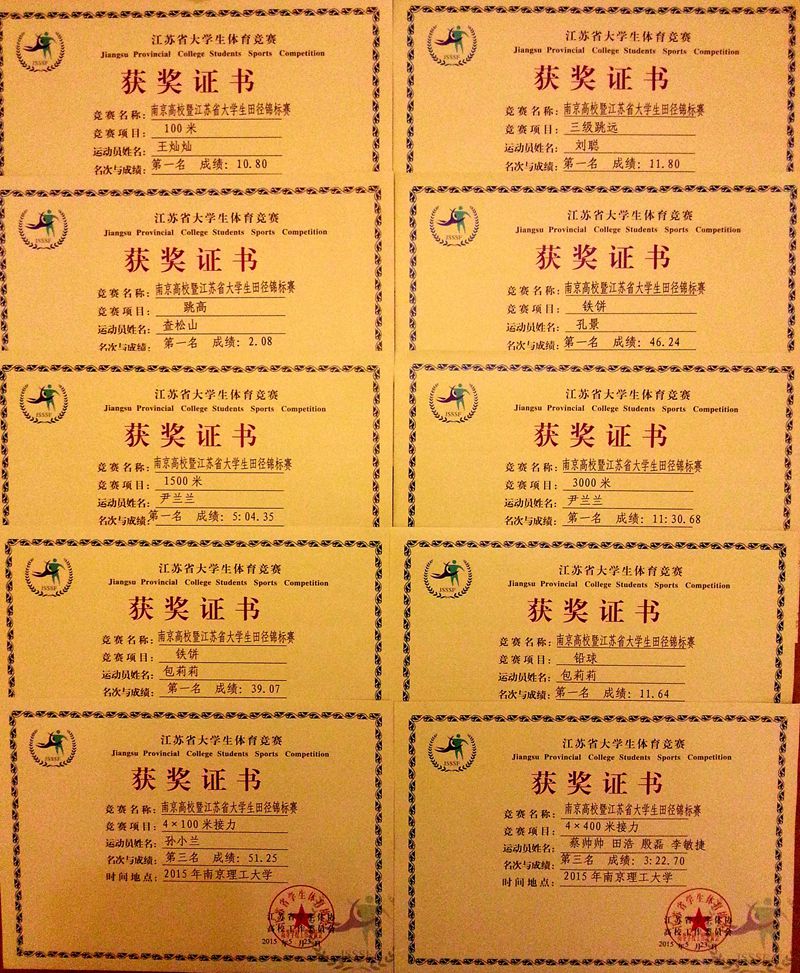 江苏省大学生体育竞赛
Jiangsu Provincial College Students Sports Competition
获奖证书
竞赛名称：南京高校暨江苏省大学生田径锦标赛
竞赛项目：100米
运动员姓名：王灿灿
名次与成绩：第一名 成绩：10.80
JSSSF
江苏省大学生体育竞赛
Jiangsu Provincial College Students Sports Competition
获奖证书
竞赛名称：南京高校暨江苏省大学生田径锦标赛
竞赛项目：三级跳远
运动员姓名：刘聪
名次与成绩：第一名 成绩：11.80
JSSSF
江苏省大学生体育竞赛
Jiangsu Provincial College Students Sports Competition
获奖证书
竞赛名称：南京高校暨江苏省大学生田径锦标赛
竞赛项目：跳高
运动员姓名：查松山
名次与成绩：第一名 成绩：2.08
JSSSF
江苏省大学生体育竞赛
Jiangsu Provincial College Students Sports Competition
获奖证书
竞赛名称：南京高校暨江苏省大学生田径锦标赛
竞赛项目：铁饼
运动员姓名：孔景
名次与成绩：第一名 成绩：46.24
JSSSF
江苏省大学生体育竞赛
Jiangsu Provincial College Students Sports Competition
获奖证书
竞赛名称：南京高校暨江苏省大学生田径锦标赛
竞赛项目：1500米
运动员姓名：尹兰兰
名次与成绩：第一名 成绩：5:04.35
JSSSF
江苏省大学生体育竞赛
Jiangsu Provincial College Students Sports Competition
获奖证书
竞赛名称：南京高校暨江苏省大学生田径锦标赛
竞赛项目：3000米
运动员姓名：尹兰兰
名次与成绩：第一名 成绩：11:30.68
JSSSF
江苏省大学生体育竞赛
Jiangsu Provincial College Students Sports Competition
获奖证书
竞赛名称：南京高校暨江苏省大学生田径锦标赛
竞赛项目：铁饼
运动员姓名：包莉莉
名次与成绩：第一名 成绩：39.07
JSSSF
江苏省大学生体育竞赛
Jiangsu Provincial College Students Sports Competition
获奖证书
竞赛名称：南京高校暨江苏省大学生田径锦标赛
竞赛项目：铅球
运动员姓名：包莉莉
名次与成绩：第一名 成绩：11.64
JSSSF
江苏省大学生体育竞赛
Jiangsu Provincial College Students Sports Competition
获奖证书
竞赛名称：南京高校暨江苏省大学生田径锦标赛
竞赛项目：4×100米接力
运动员姓名：孙小兰
名次与成绩：第三名 成绩：51.25
时间地点：2015年南京理工大学
JSSSF
2015年5月23日
江苏省大学生体育竞赛
Jiangsu Provincial College Students Sports Competition
获奖证书
竞赛名称：南京高校暨江苏省大学生田径锦标赛
竞赛项目：4×400米接力
运动员姓名：蔡帅帅 田浩 殷磊 李敏捷
名次与成绩：第三名 成绩：3:22.70
时间地点：2015年南京理工大学
JSSSF
高校工作委员会